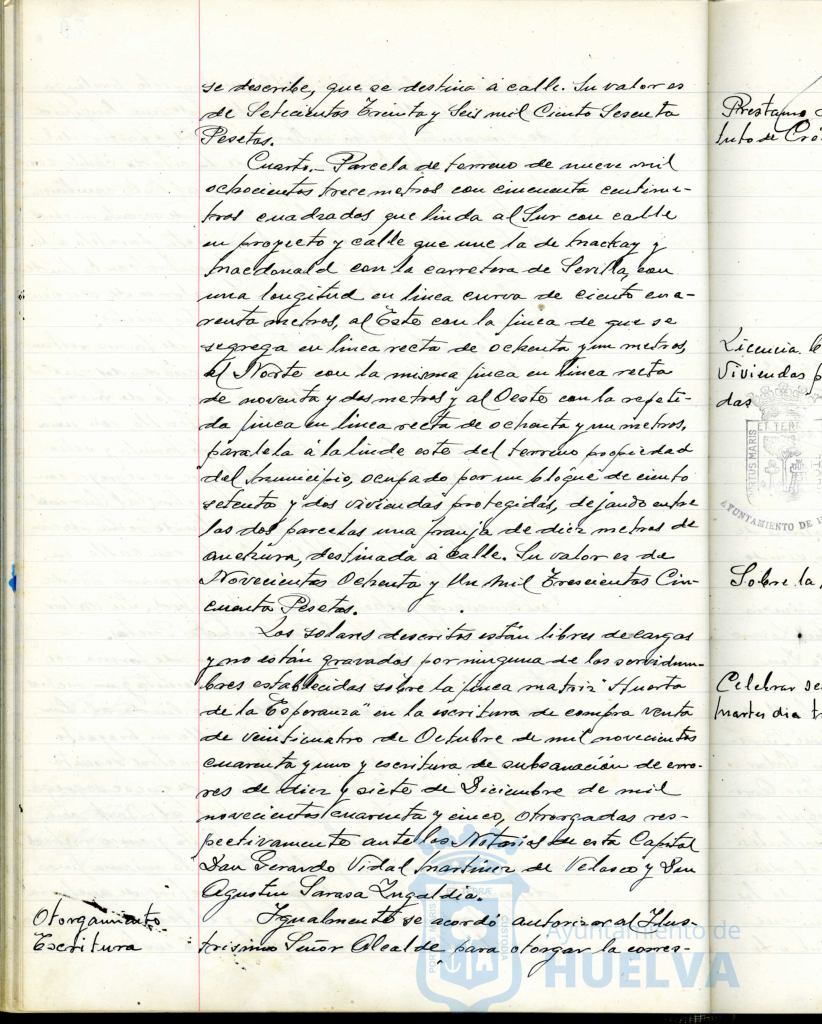 se describe, que se destina á calle. Su valor es
de Setecientos Treinta y Seis mil Ciento Sesenta
Pesetas.
Cuarto.- Parcela de terreno de nueve mil
ochocientos trece metros con cincuenta centíme-
tros cuadrados que linda al Sur con calle
en proyecto y calle que une la de Mackay y
Macdonald con la carretera de Sevilla, con
una longitud en línea curva de ciento cua-
renta metros, al Este con la finca de que se
segrega en línea recta de ochenta y un metros,
al Norte con la misma finca en línea recta
de noventa y dos metros y al Oeste con la repeti-
da finca en línea recta de ochenta y un metros,
paralela á la linde este del terreno propiedad
del Municipio, ocupado por un bloque de ciento
setenta y dos viviendas protegidas, dejando entre
las dos parcelas una franja de diez metros de
anchura, destinada á calle. Su valor es de
Novecientas Ochenta y Un Mil Trescientas Cin-
cuenta Pesetas.
Los solares descritos están libres de cargas
y no están gravados por ninguna de las servidum-
bres establecidas sobre la finca matriz "Huerta
de la Esperanza" en la escritura de compra venta
de veinticuatro de Octubre de mil novecientos
cuarenta y uno y escritura de subsanación de erro-
res de diez y siete de Diciembre de mil
novecientos cuarenta y cinco, otorgadas res-
pectivamente ante los Notarios de esta Capital
Don Gerardo Vidal Martínez de Velasco y Don
Agustín Sarasa Zugaldía.
Otorgamiento
Escritura
Igualmente se acordó autorizar al Ilus-
trísimo Señor Alcalde para otorgar la corres-
Prestamo
tuto de Cré
Licencia
Viviendas p
das
PORTUS MARIS
ET TERR
AYUNTAMIENTO DE H
Sobre la
Celebrar se
martes dia t
Ayuntamiento de
HUELVA